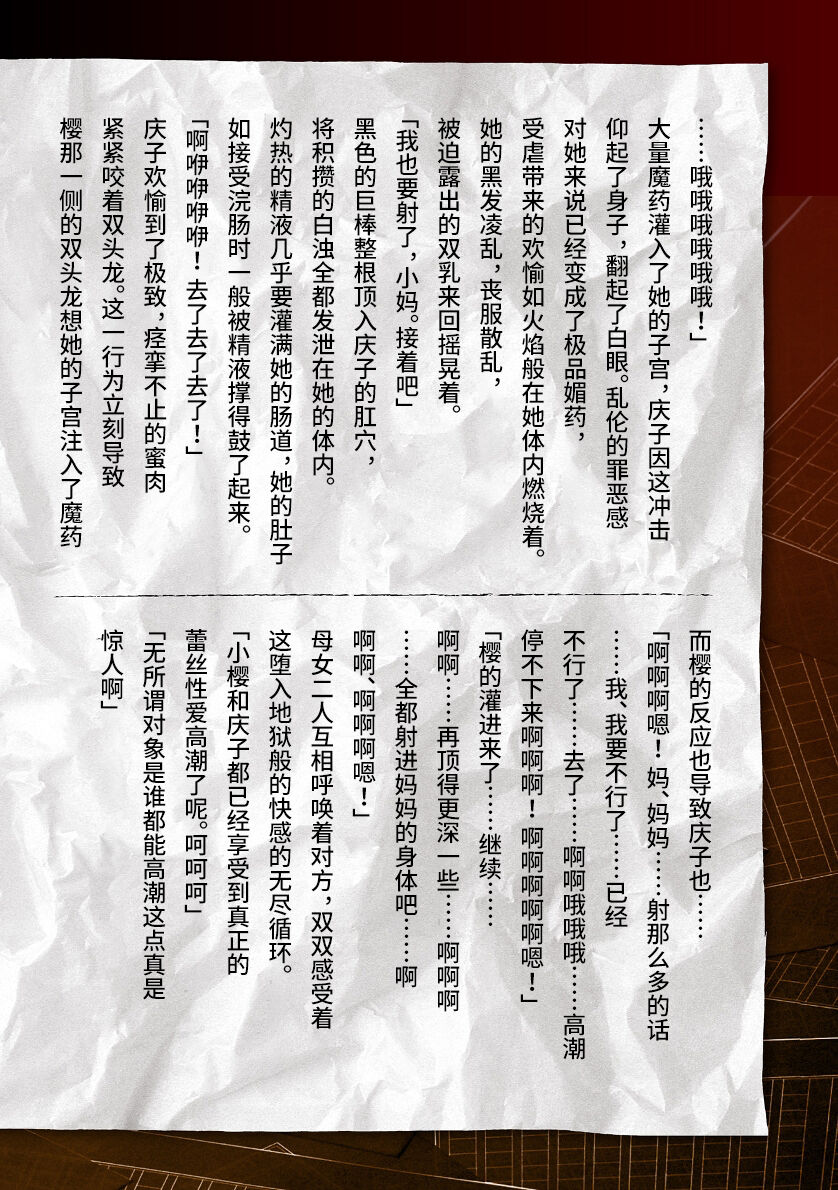 ……哦哦哦哦哦哦！」
大量魔药灌入了她的子宫，庆子因这冲击
仰起了身子，翻起了白眼。乱伦的罪恶感
对她来说已经变成了极品媚药，
受虐带来的欢愉如火焰般在她体内燃烧着。
她的黑发凌乱，丧服散乱，
被迫露出的双乳来回摇晃着。
「我也要射了，小妈。接着吧」
黑色的巨棒整根顶入庆子的肛穴，
将积攒的白浊全都发泄在她的体内。
灼热的精液几乎要灌满她的肠道，她的肚子
如接受浣肠时一般被精液撑得鼓了起来。
「啊咿咿咿咿！去了去了去了！」
庆子欢愉到了极致，痉挛不止的蜜肉
紧紧咬着双头龙。这一行为立刻导致
樱那一侧的双头龙想她的子宫注入了魔药
而樱的反应也导致庆子也……
「啊啊啊嗯！妈、妈妈……射那么多的话
……我、我要不行了……已经
不行了……去了……啊啊哦哦哦……高潮
停不下来啊啊啊！啊啊啊啊啊嗯！」
「樱的灌进来了……继续……
啊啊……再顶得更深一些……啊啊啊
……全都射进妈妈的身体吧……啊
啊啊、啊啊啊嗯！」
母女二人互相呼唤着对方，双双感受着
这堕入地狱般的快感的无尽循环。
「小樱和庆子都已经享受到真正的
蕾丝性爱高潮了呢。呵呵呵」
「无所谓对象是谁都能高潮这点真是
惊人啊」